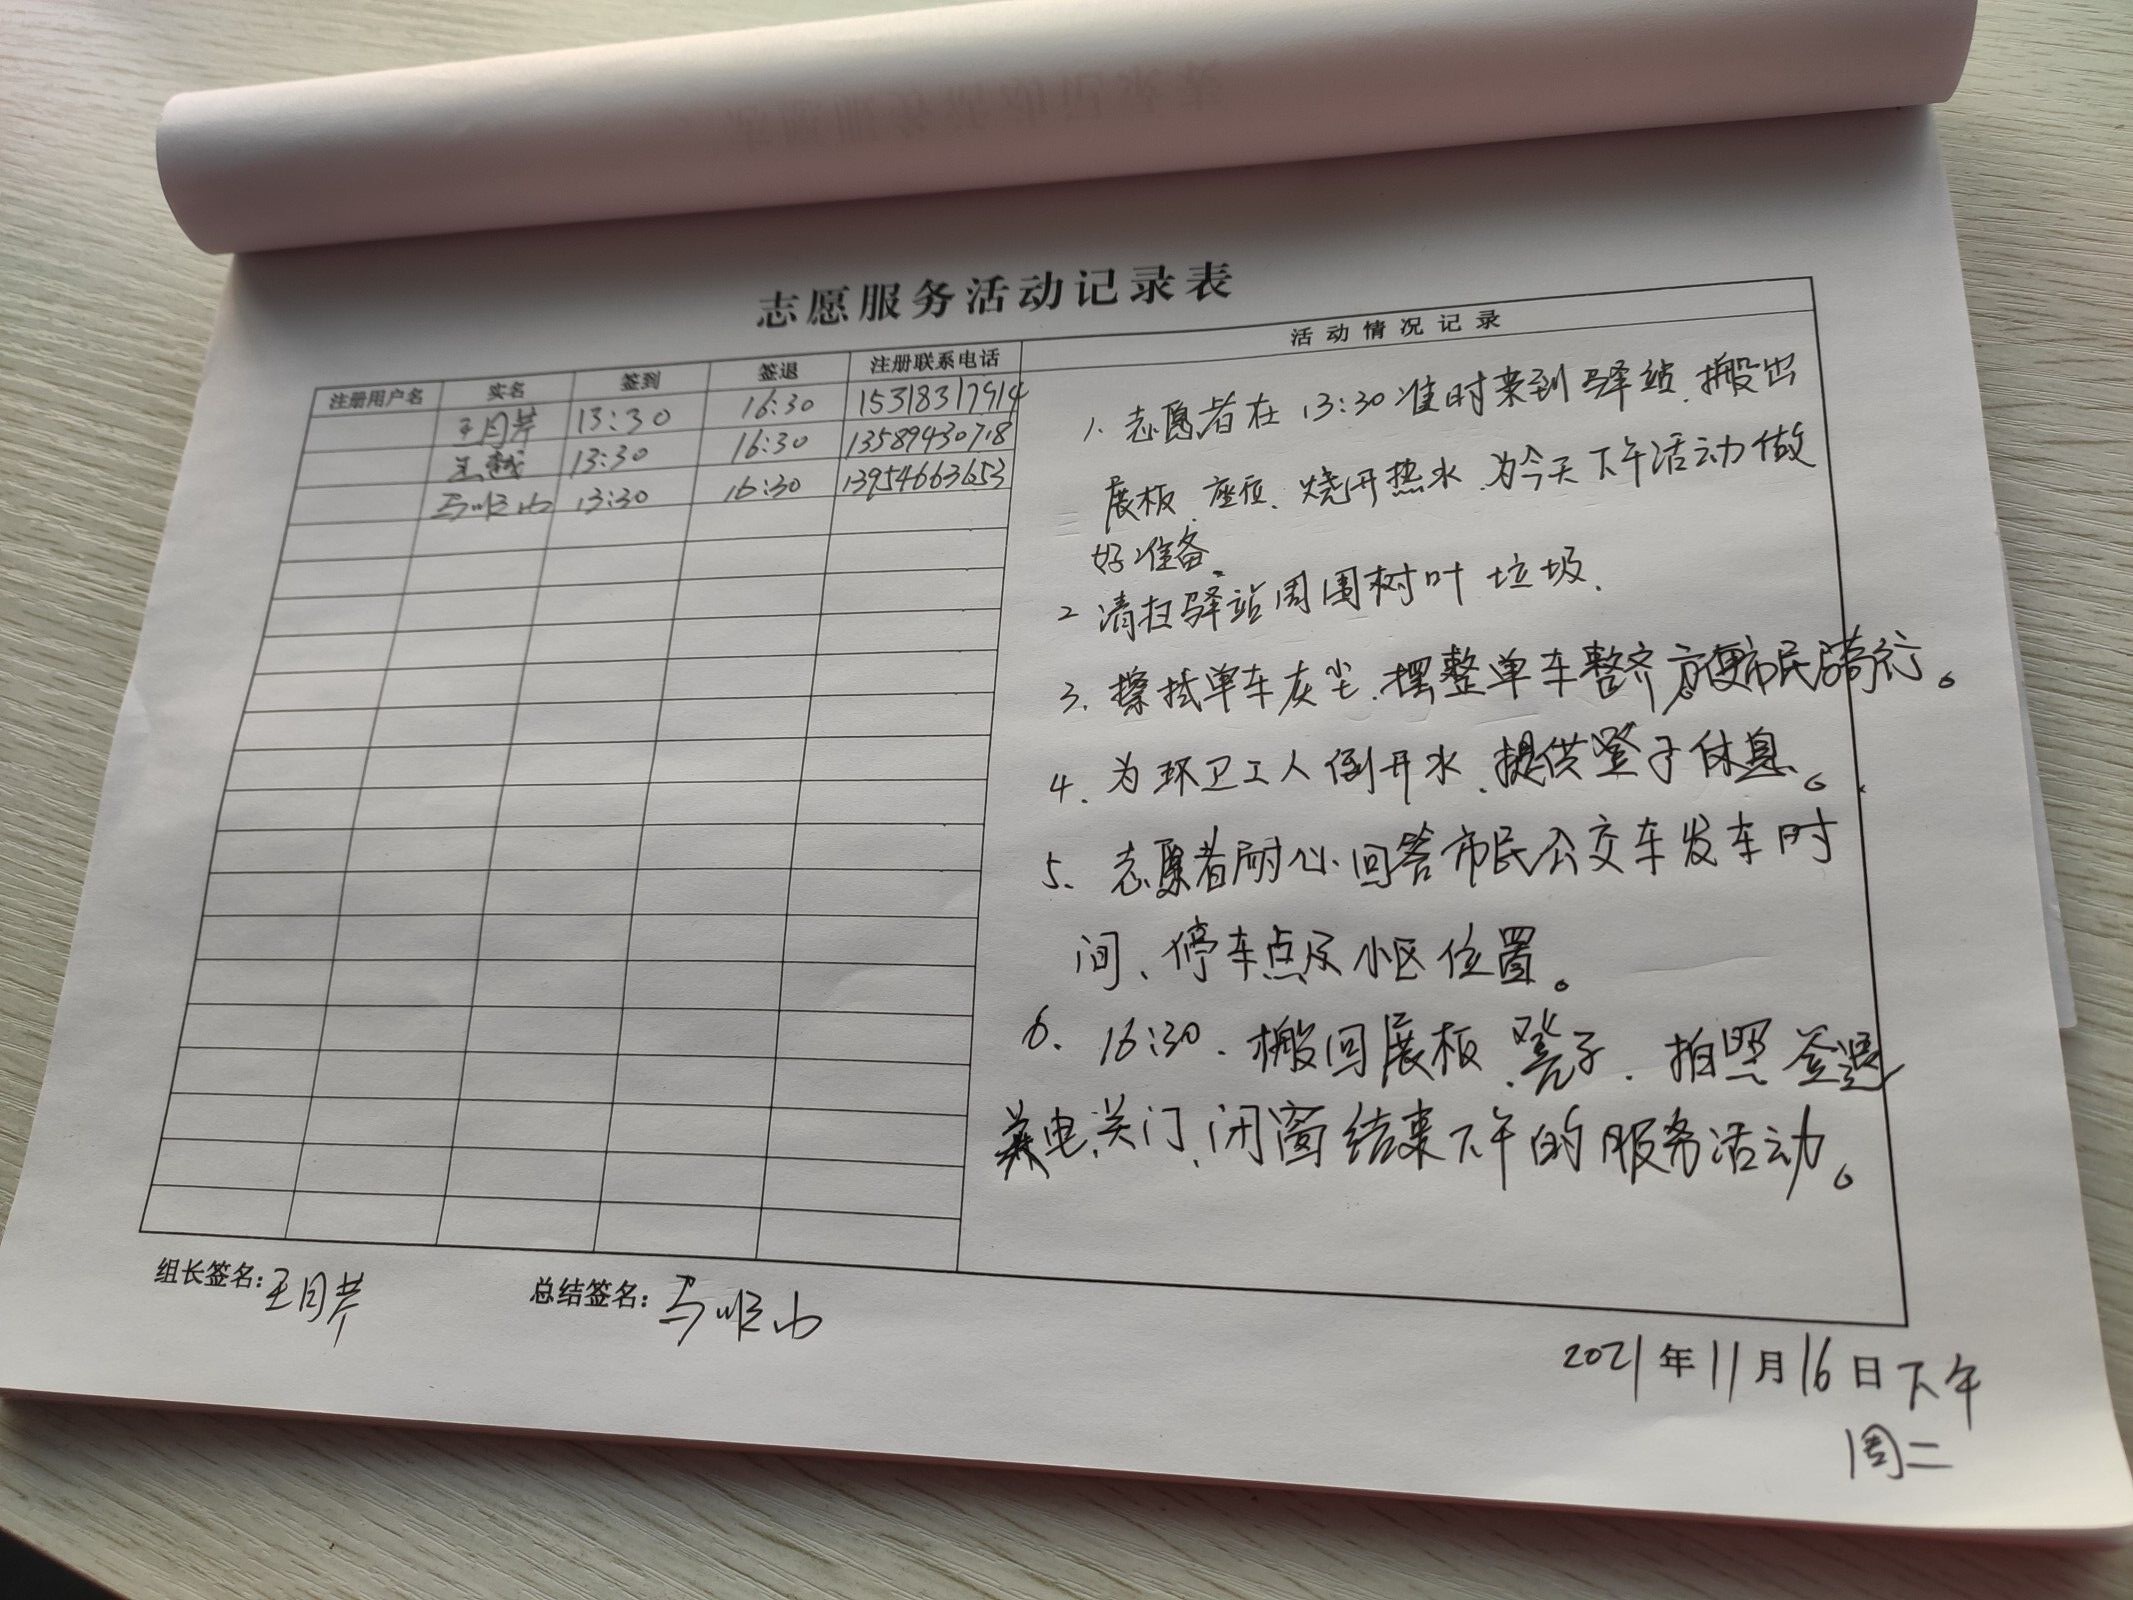 志愿服务活动记录表
注册用户名 实名 签到 签退 注册联系电话
王月芹 13:30 16:30 15318317914
王越 13:30 16:30 13589430718
马顺山 13:30 16:30 13954663653
活动情况记录
1. 志愿者在13:30准时来到驿站、搬出
展板、座位、烧开热水、为今天下午活动做
好准备。
2 清扫驿站周围树叶垃圾.
3. 擦拭单车灰尘、摆整单车整齐方便市民骑行。
4. 为环卫工人倒开水、提供凳子休息。
5. 志愿者耐心回答市民公交车发车时
间、停车点及小区位置。
6. 16:30. 搬回展板、凳子. 拍照签退
关电、关门、闭窗结束下午的服务活动。
组长签名:王月芹 总结签名:马顺山
2021年11月16日下午
周二